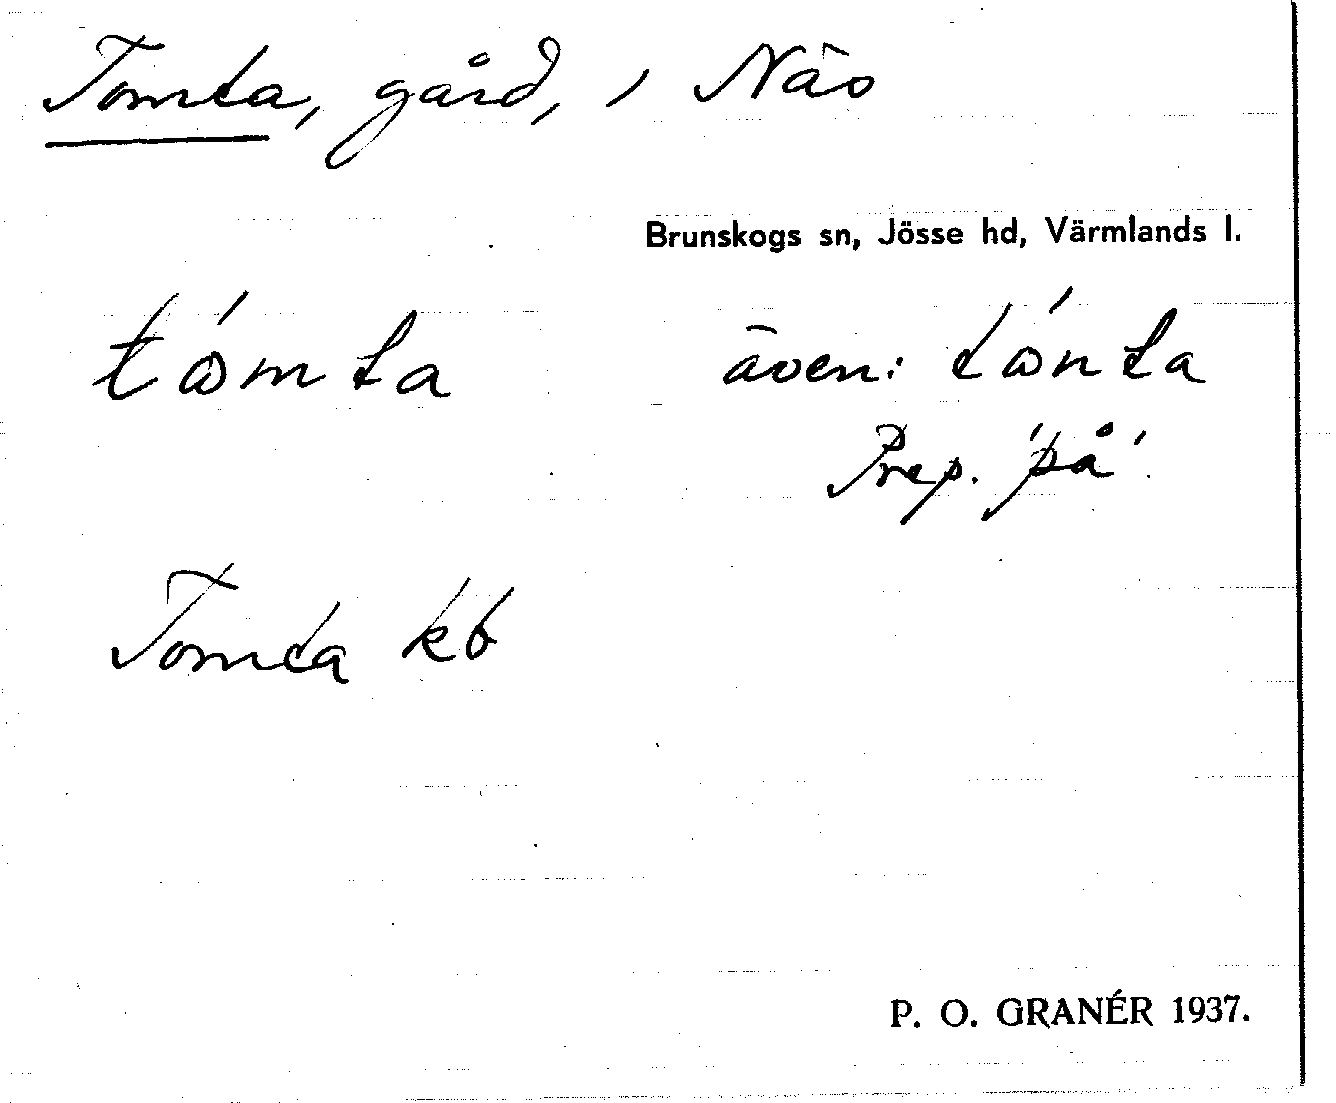 Tomta, gård, i Näs
Brunskogs sn, Jösse hd, Värmlands l.
tω̇́mta även: tώnta
Prep. 'på'.
Tomta kb
P. O. GRANÉR 1937.